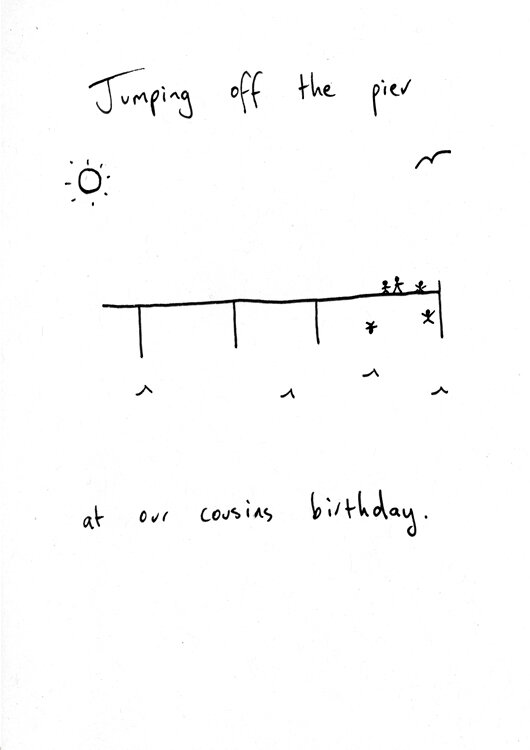 Jumping off the pier
at our cousins birthday.